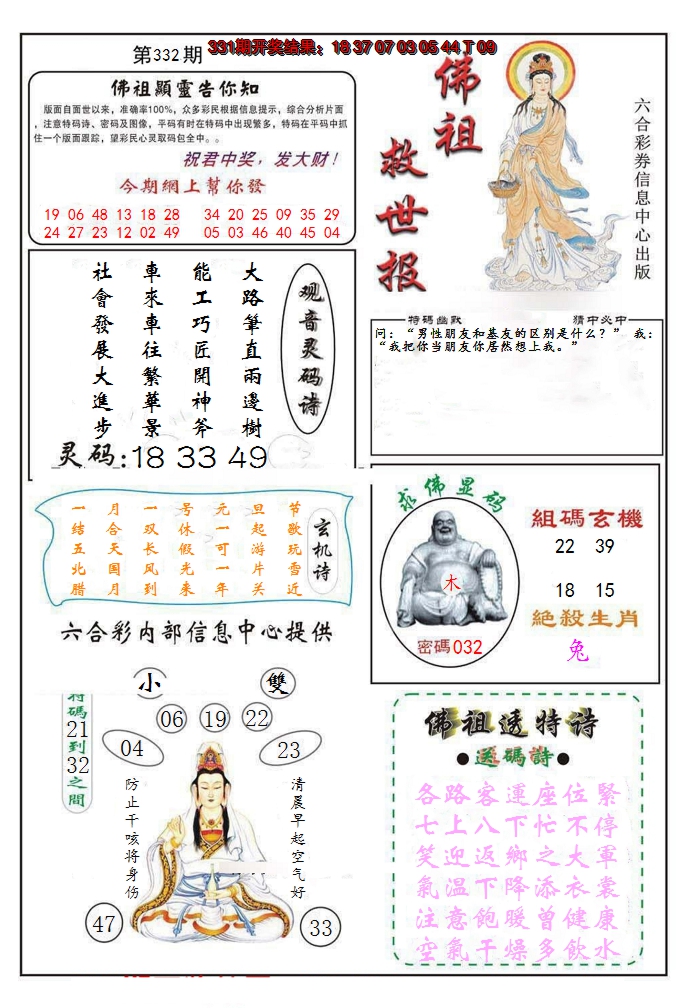 第332期
331期开奖结果：18 37 07 03 05 44 T 09
佛祖顯靈告你知
版面自面世以来，准确率100%，众多彩民根据信息提示，综合分析片面
，注意特码诗、密码及图像，平码有时在特码中出现繁多，特码在平码中抓
住一个版面跟踪，望彩民心灵取码包全中。。
祝君中奖，发大财！
今期網上幫你發
19 06 48 13 18 28 34 20 25 09 35 29
24 27 23 12 02 49 05 03 46 40 45 04
佛祖
救世报
六合彩券信息中心出版
观音灵码诗
大路筆直兩邊樹
能工巧匠開神斧
車來車往繁華景
社會發展大進步
灵码:18 33 49
特碼幽默 猜中必中
问：“男性朋友和基友的区别是什么？” 我：
“我把你当朋友你居然想上我。”
玄机诗
节歌玩雪近
旦起游片关
元一可一年
号休假光来
一双长风到
月合天国月
一结五北腊
六合彩内部信息中心提供
求佛显码
木
密碼032
組碼玄機
22 39
18 15
絶殺生肖
兔
小 雙
特碼21到32之間
06 19 22
04 23
清晨早起空气好
防止干咳将身伤
47 33
佛祖透特诗
●送碼詩●
各路客運座位緊
七上八下忙不停
笑迎返鄉之大軍
氣温下降添衣裳
注意飽暖曾健康
空氣干燥多飲水